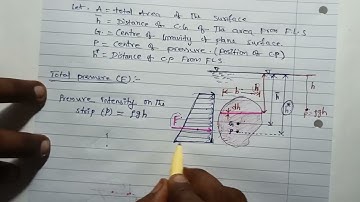 Let. A = total Area of the surface
h̄ = Distance of C.G of the area from F.L.S
G = Centre of Gravity of plane surface.
P = Centre of pressure. (position of CP)
h* = Distance of CP From FLS
Total pressure (F):-
Pressure intensity on the
strip (P) = ρgh
F
b
dh
G
P
h
h̄
h
P=ρgh